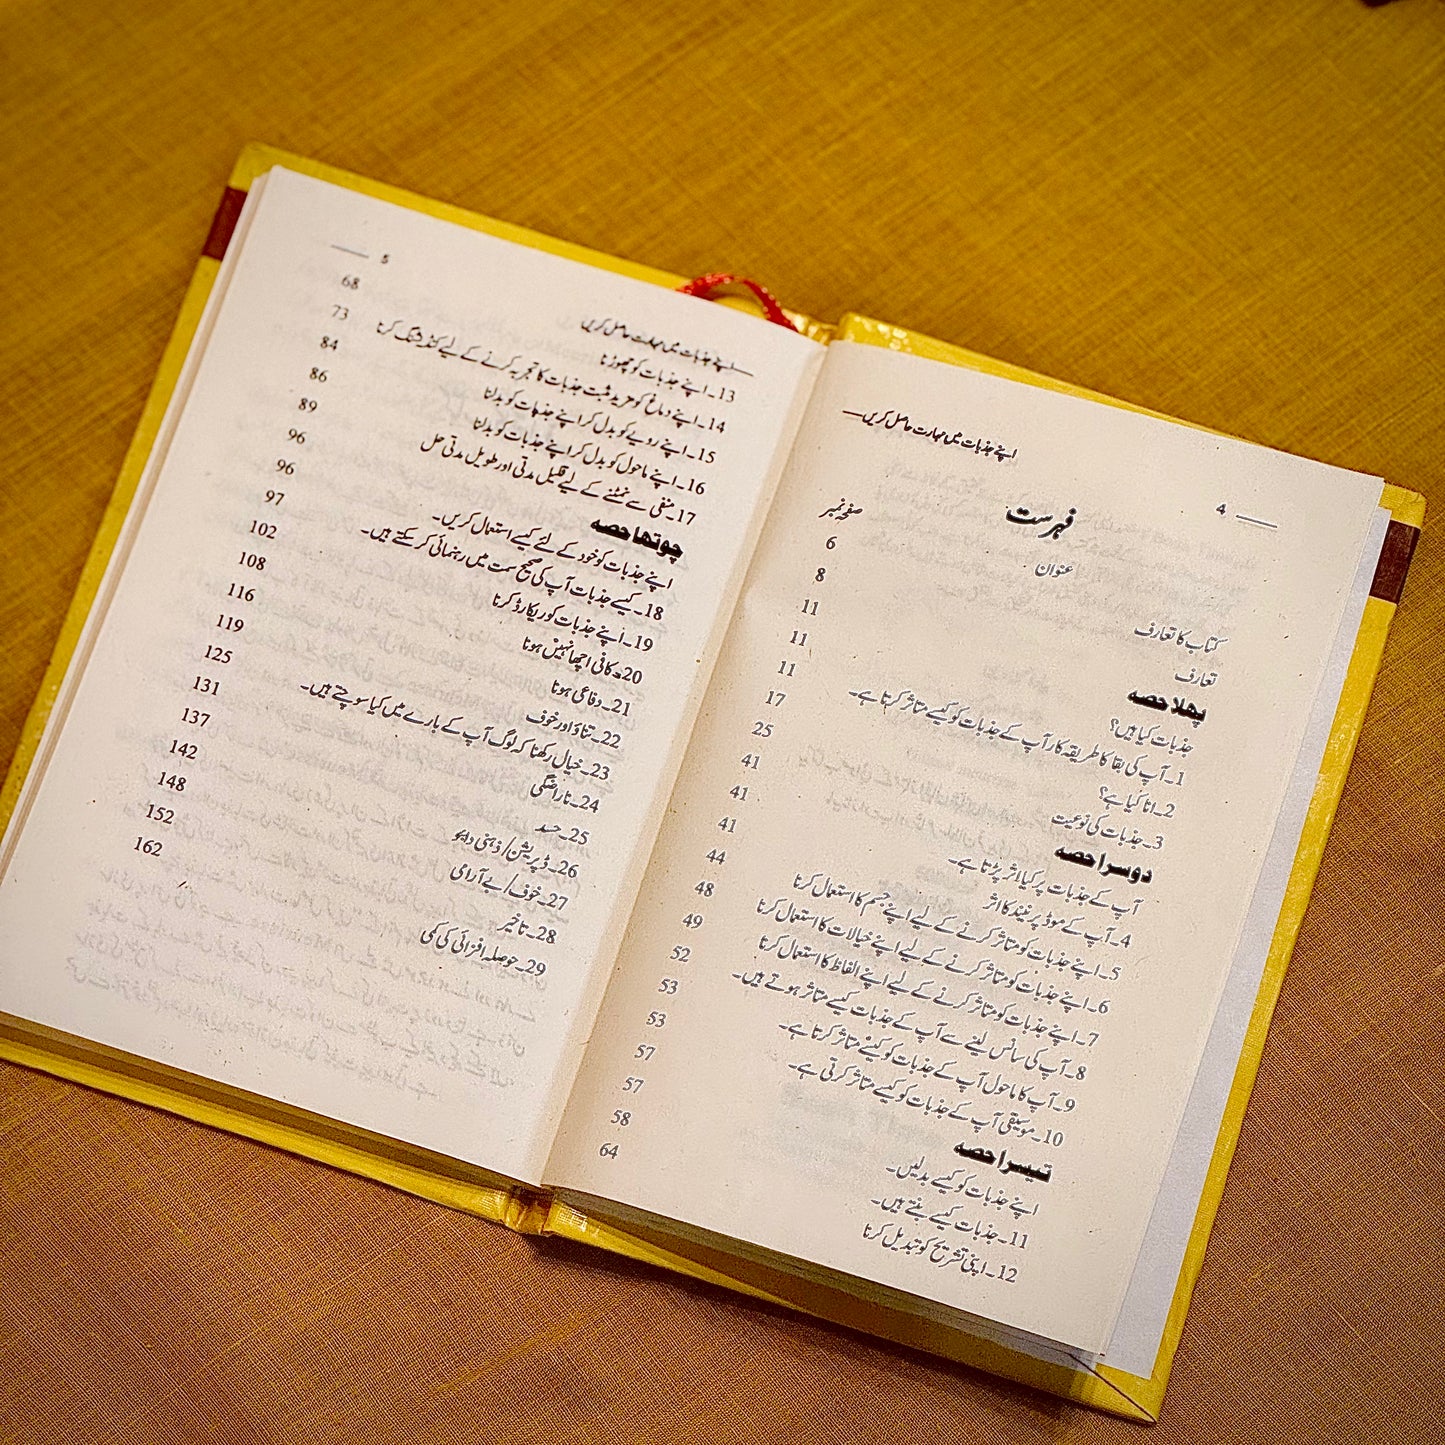 4
اپنے جذبات میں مہارت حاصل کریں
فہرست
صفحہ نمبر
عنوان
کتاب کا تعارف 6
تعارف 8
پہلا حصہ 11
جذبات کیا ہیں؟ 11
1۔ آپ کی بقا کا طریقہ کار آپ کے جذبات کو کیسے متاثر کرتا ہے۔ 11
2۔ انا کیا ہے؟ 17
3۔ جذبات کی نوعیت 25
دوسرا حصہ 41
آپ کے جذبات پر کیا اثر پڑتا ہے۔ 41
4۔ آپ کے موڈ پر نیند کا اثر 41
5۔ اپنے جذبات کو متاثر کرنے کے لیے اپنے جسم کا استعمال کرنا 44
6۔ اپنے جذبات کو متاثر کرنے کے لیے اپنے خیالات کا استعمال کرنا 48
7۔ اپنے جذبات کو متاثر کرنے کے لیے اپنے الفاظ کا استعمال کرنا 49
8۔ آپ کی سانس لینے سے آپ کے جذبات کیسے متاثر ہوتے ہیں۔ 52
9۔ آپ کا ماحول آپ کے جذبات کو کیسے متاثر کرتا ہے۔ 53
10۔ موسیقی آپ کے جذبات کو کیسے متاثر کرتی ہے۔ 53
تیسرا حصہ 57
اپنے جذبات کو کیسے بدلیں۔ 57
11۔ جذبات کیسے بنتے ہیں۔ 58
12۔ اپنی تشریح کو تبدیل کرنا 64
5
اپنے جذبات میں مہارت حاصل کریں
13۔ اپنے جذبات کو چھوڑنا 68
14۔ اپنے دماغ کو مزید مثبت جذبات کا تجربہ کرنے کے لیے کنڈیشنگ کرنا 73
15۔ اپنے رویے کو بدل کر اپنے جذبات کو بدلنا 84
16۔ اپنے ماحول کو بدل کر اپنے جذبات کو بدلنا 86
17۔ منفی سے نمٹنے کے لیے قلیل مدتی اور طویل مدتی حل 89
چوتھا حصہ 96
اپنے جذبات کو خود کے لئے کیسے استعمال کریں۔ 96
18۔ کیسے جذبات آپ کی صحیح سمت میں رہنمائی کر سکتے ہیں۔ 97
19۔ اپنے جذبات کو ریکارڈ کرنا 102
20۔ کافی اچھا نہیں ہونا 108
21۔ دفاعی ہونا 116
22۔ تناؤ اور خوف 119
23۔ خیال رکھنا کہ لوگ آپ کے بارے میں کیا سوچتے ہیں۔ 125
24۔ ناراضگی 131
25۔ حسد 137
26۔ ڈپریشن/ذہنی دباؤ 142
27۔ خوف/بے آرامی 148
28۔ تاخیر 152
29۔ حوصلہ افزائی کی کمی 162